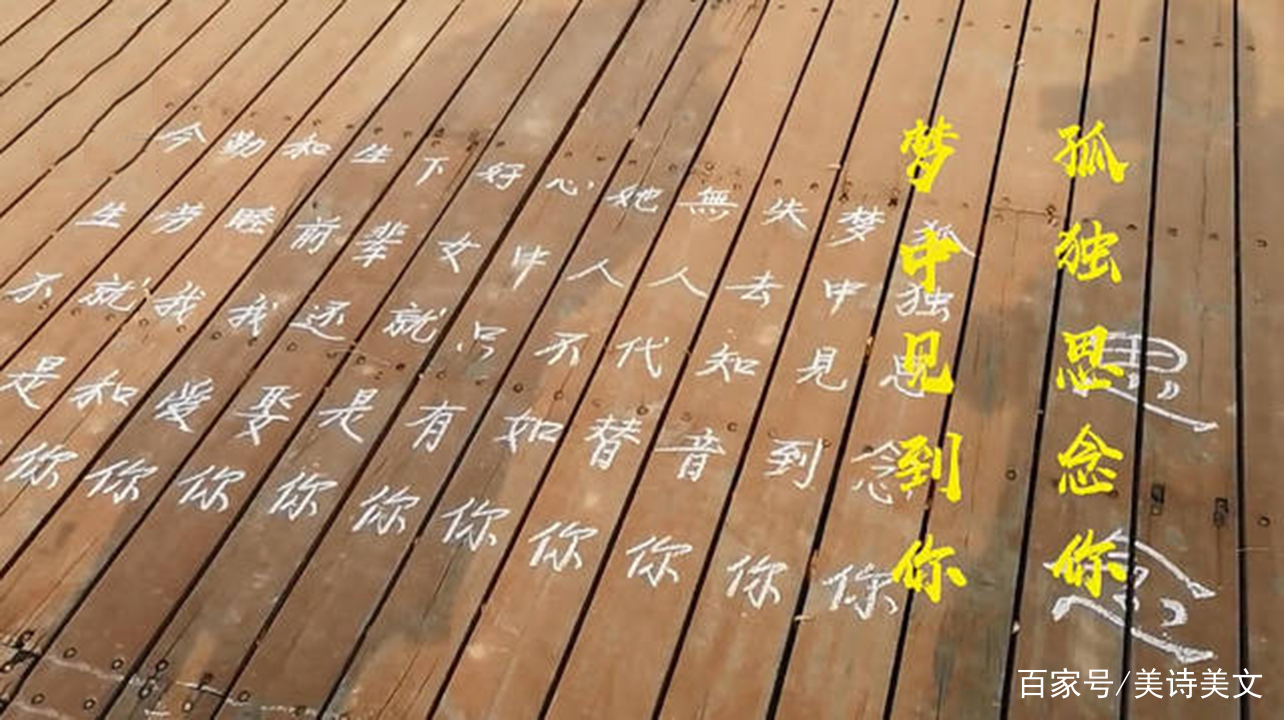 思念
孤独思念你
梦中见到你
孤独思念你
梦中見到你
失去知音你
無人代替你
她人不如你
心中只有你
好女就是你
下輩还娶你
生前我愛你
和睦我和你
勤劳就是
今生不
百家号/美诗美文